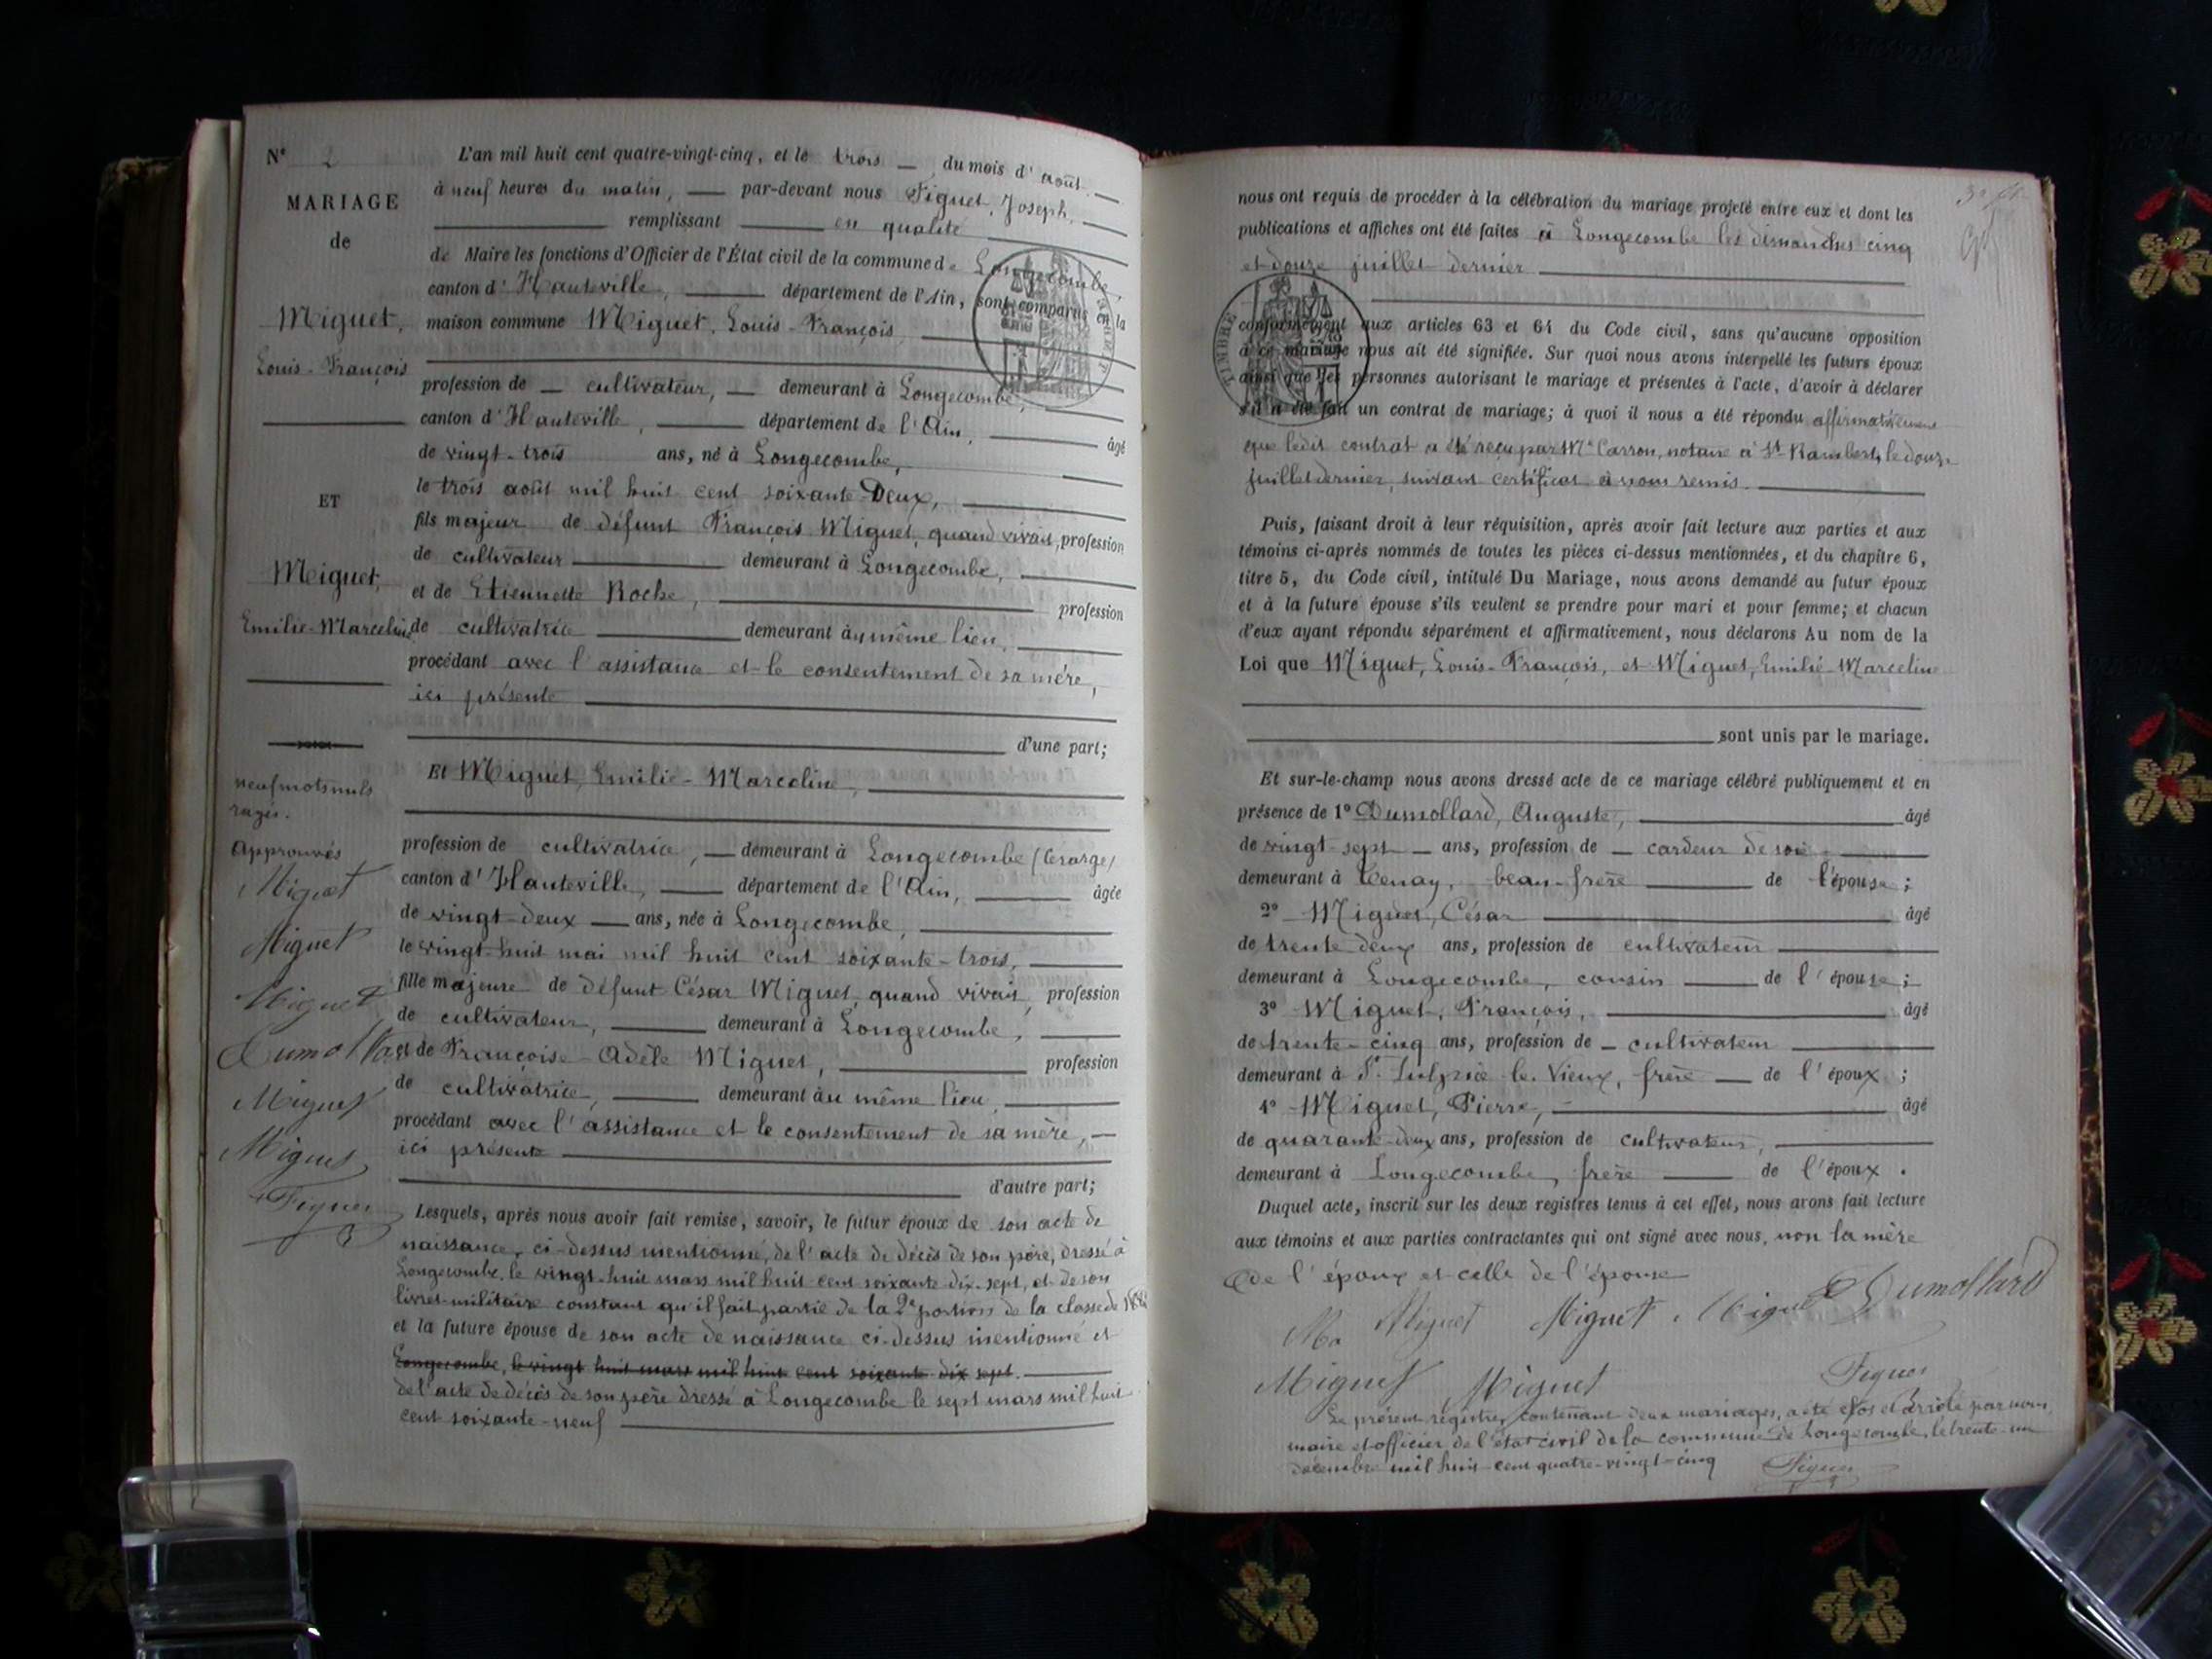 N° 2
MARIAGE
de
Miguet,
Louis-François
ET
Miguet,
Emilie-Marceline
neuf mots nuls
rayés.
Approuvés
Miguet
Miguet
Miguet
Dumollard
Miguet
Miguet
Figuet
L'an mil huit cent quatre-vingt-cinq, et le trois — du mois d'août —
à neuf heures du matin, — par-devant nous Figuet, Joseph,
remplissant en qualité
de Maire les fonctions d'Officier de l'État civil de la commune de Longecombe,
canton d'Hauteville, département de l'Ain, sont comparus en la
maison commune Miguet, Louis-François,
profession de — cultivateur, — demeurant à Longecombe,
canton d'Hauteville, département de l'Ain, âgé
de vingt-trois ans, né à Longecombe,
le trois août mil huit cent soixante-Deux,
fils majeur de défunt François Miguet, quand vivait, profession
de cultivateur demeurant à Longecombe,
et de Etiennette Roche, profession
de cultivatrice demeurant au même lieu,
procédant avec l'assistance et le consentement de sa mère,
ici présente
d'une part;
Et Miguet, Emilie-Marceline,
profession de cultivatrice, — demeurant à Longecombe
canton d'Hauteville, département de l'Ain, âgée
de vingt-deux — ans, née à Longecombe,
le vingt-huit mai mil huit cent soixante-trois,
fille majeure de défunt César Miguet, quand vivait, profession
de cultivateur, demeurant à Longecombe,
et de Françoise-Adèle Miguet, profession
de cultivatrice, demeurant au même lieu,
procédant avec l'assistance et le consentement de sa mère, —
ici présente
d'autre part;
Lesquels, après nous avoir fait remise, savoir, le futur époux de son acte de
naissance, ci-dessus mentionné, de l'acte de décès de son père, dressé à
Longecombe, le vingt-huit mars mil huit cent soixante-dix-sept, et de son
livret militaire constant qu'il fait partie de la 2e portion de la classe de
et la future épouse de son acte de naissance ci-dessus mentionné et
Longecombe, le vingt huit mars mil huit cent soixante dix sept.
de l'acte de décès de son père dressé à Longecombe le sept mars mil huit
cent soixante-neuf
nous ont requis de procéder à la célébration du mariage projeté entre eux et dont les
publications et affiches ont été faites à Longecombe les dimanches cinq
et douze juillet dernier
TIMBRE
conformément aux articles 63 et 64 du Code civil, sans qu'aucune opposition
à ce mariage nous ait été signifiée. Sur quoi nous avons interpellé les futurs époux
ainsi que les personnes autorisant le mariage et présentes à l'acte, d'avoir à déclarer
s'il a été fait un contrat de mariage; à quoi il nous a été répondu affirmativement
que ledit contrat a été reçu par Me Carron, notaire à St Rambert, le douze
juillet dernier, suivant certificat à nous remis.
Puis, faisant droit à leur réquisition, après avoir fait lecture aux parties et aux
témoins ci-après nommés de toutes les pièces ci-dessus mentionnées, et du chapitre 6,
titre 5, du Code civil, intitulé Du Mariage, nous avons demandé au futur époux
et à la future épouse s'ils veulent se prendre pour mari et pour femme; et chacun
d'eux ayant répondu séparément et affirmativement, nous déclarons Au nom de la
Loi que Miguet, Louis-François, et Miguet, Emilie-Marceline
sont unis par le mariage.
Et sur-le-champ nous avons dressé acte de ce mariage célébré publiquement et en
présence de 1° Dumollard, Auguste, âgé
de vingt-sept — ans, profession de — cardeur de soie
demeurant à Tenay, beau-frère de l'épouse;
2° Miguet, César âgé
de trente deux ans, profession de cultivateur
demeurant à Longecombe, cousin de l'épouse;
3° Miguet, François, âgé
de trente-cinq ans, profession de — cultivateur
demeurant à St Sulpice le Vieux, frère — de l'époux;
4° Miguet, Pierre, âgé
de quarante-deux ans, profession de cultivateur,
demeurant à Longecombe, frère de l'époux.
Duquel acte, inscrit sur les deux registres tenus à cet effet, nous avons fait lecture
aux témoins et aux parties contractantes qui ont signé avec nous, non la mère
de l'époux et celle de l'épouse
Miguet Miguet Miguet Dumollard
Miguet Miguet Figuet
Le présent registre, contenant deux mariages, a été clos et arrêté par nous,
maire et officier de l'état civil de la commune de Longecombe, le trente-un
décembre mil huit-cent quatre-vingt-cinq
Figuet